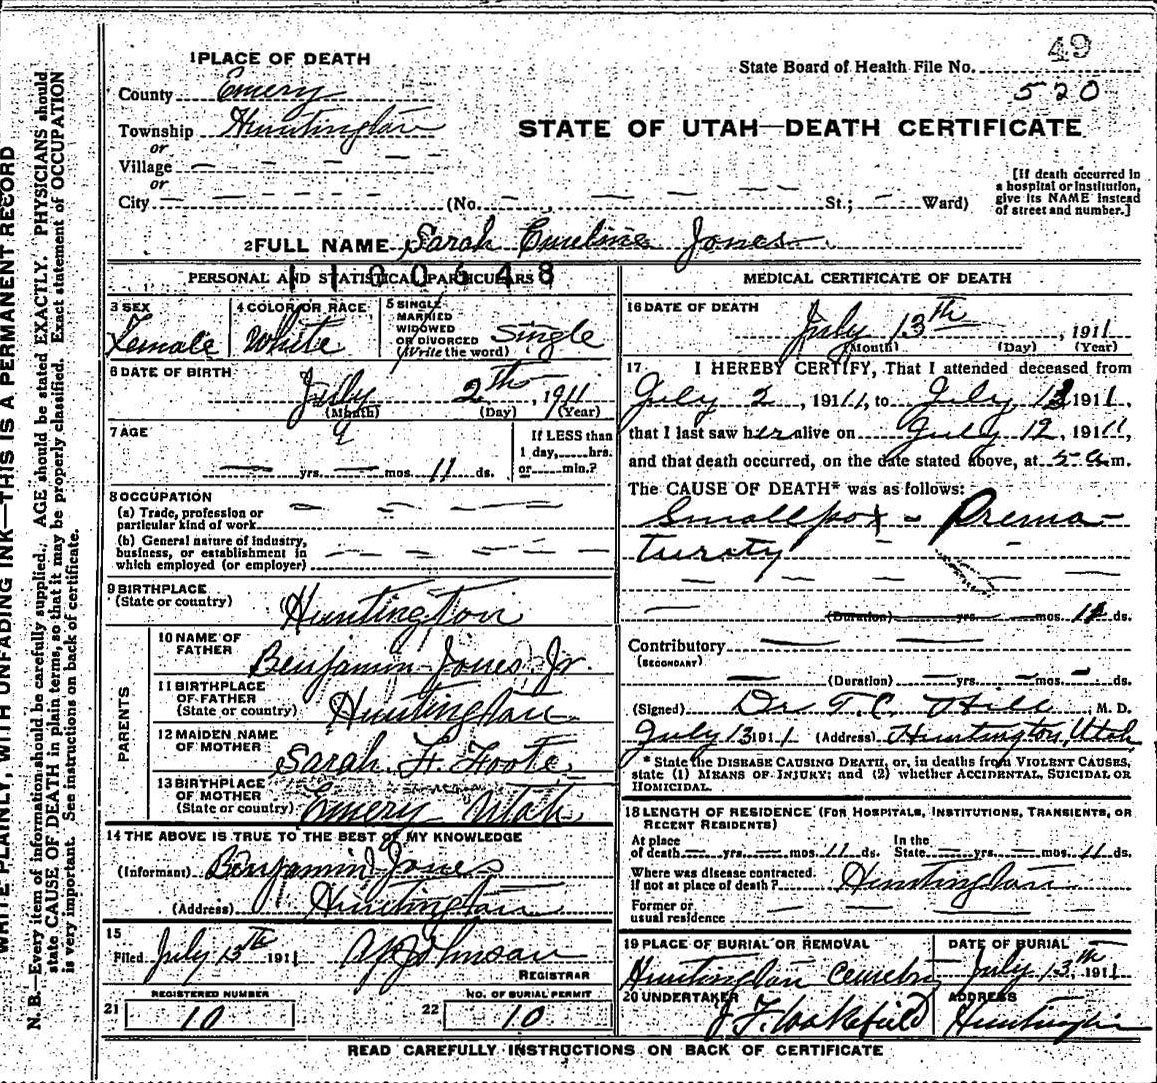 49
State Board of Health File No.
520
1 PLACE OF DEATH
County Emery
Township Huntington
or
Village
or
City (No. , St.; Ward)
STATE OF UTAH—DEATH CERTIFICATE
[If death occurred in
a hospital or institution,
give its NAME instead
of street and number.]
2 FULL NAME Sarah Emeline Jones
1100648
PERSONAL AND STATISTICAL PARTICULARS
3 SEX
Female
4 COLOR OR RACE
White
5 SINGLE
MARRIED
WIDOWED
OR DIVORCED
(Write the word)
Single
6 DATE OF BIRTH
July 2th, 1911
(Month) (Day) (Year)
7 AGE
yrs. mos. 11 ds.
If LESS than
1 day, hrs.
or min.?
8 OCCUPATION
(a) Trade, profession or
particular kind of work
(b) General nature of industry,
business, or establishment in
which employed (or employer)
9 BIRTHPLACE
(State or country)
Huntington
PARENTS
10 NAME OF
FATHER
Benjamin Jones, Jr.
11 BIRTHPLACE
OF FATHER
(State or country)
Huntington
12 MAIDEN NAME
OF MOTHER
Sarah F. Foote
13 BIRTHPLACE
OF MOTHER
(State or country)
Emery Utah
14 THE ABOVE IS TRUE TO THE BEST OF MY KNOWLEDGE
(Informant) Benjamin Jones
(Address) Huntington
15
Filed July 13th 1911 Johnson
REGISTRAR
21
REGISTERED NUMBER
10
22
NO. OF BURIAL PERMIT
10
MEDICAL CERTIFICATE OF DEATH
16 DATE OF DEATH
July 13th, 1911
(Month) (Day) (Year)
17 I HEREBY CERTIFY, That I attended deceased from
July 2, 1911, to July 13 1911,
that I last saw her alive on July 12, 1911,
and that death occurred, on the date stated above, at 5 a.m.
The CAUSE OF DEATH* was as follows:
Smallpox - Prema-
turity
(Duration) yrs. mos. ds.
Contributory
(SECONDARY)
(Duration) yrs. mos. ds.
(Signed) Dr T. C. Hill, M. D.
July 13 1911 (Address) Huntington, Utah
* State the DISEASE CAUSING DEATH, or, in deaths from VIOLENT CAUSES,
state (1) MEANS OF INJURY; and (2) whether ACCIDENTAL, SUICIDAL OR
HOMICIDAL.
18 LENGTH OF RESIDENCE (FOR HOSPITALS, INSTITUTIONS, TRANSIENTS, OR
RECENT RESIDENTS)
At place
of death yrs. mos. 11 ds.
In the
State yrs. mos. 11 ds.
Where was disease contracted
if not at place of death? Huntington
Former or
usual residence
19 PLACE OF BURIAL OR REMOVAL
Huntington Cemetery
DATE OF BURIAL
July 13th 1911
20 UNDERTAKER
J. F. Wakefield
ADDRESS
Huntington
READ CAREFULLY INSTRUCTIONS ON BACK OF CERTIFICATE
WRITE PLAINLY, WITH UNFADING INK—THIS IS A PERMANENT RECORD
N. B.—Every item of information should be carefully supplied. AGE should be stated EXACTLY. PHYSICIANS should
state CAUSE OF DEATH in plain terms, so that it may be properly classified. Exact statement of OCCUPATION
is very important. See instructions on back of certificate.